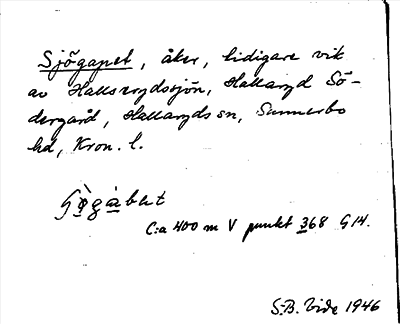 Sjögapet, åker, tidigare vik
av Hallarydssjön, Hallaryd Sö-
dergård, Hallaryds sn, Sunnerbo
hd, Kron. l.
C:a 400 m V punkt 368 G14.
S-B. Vide 1946